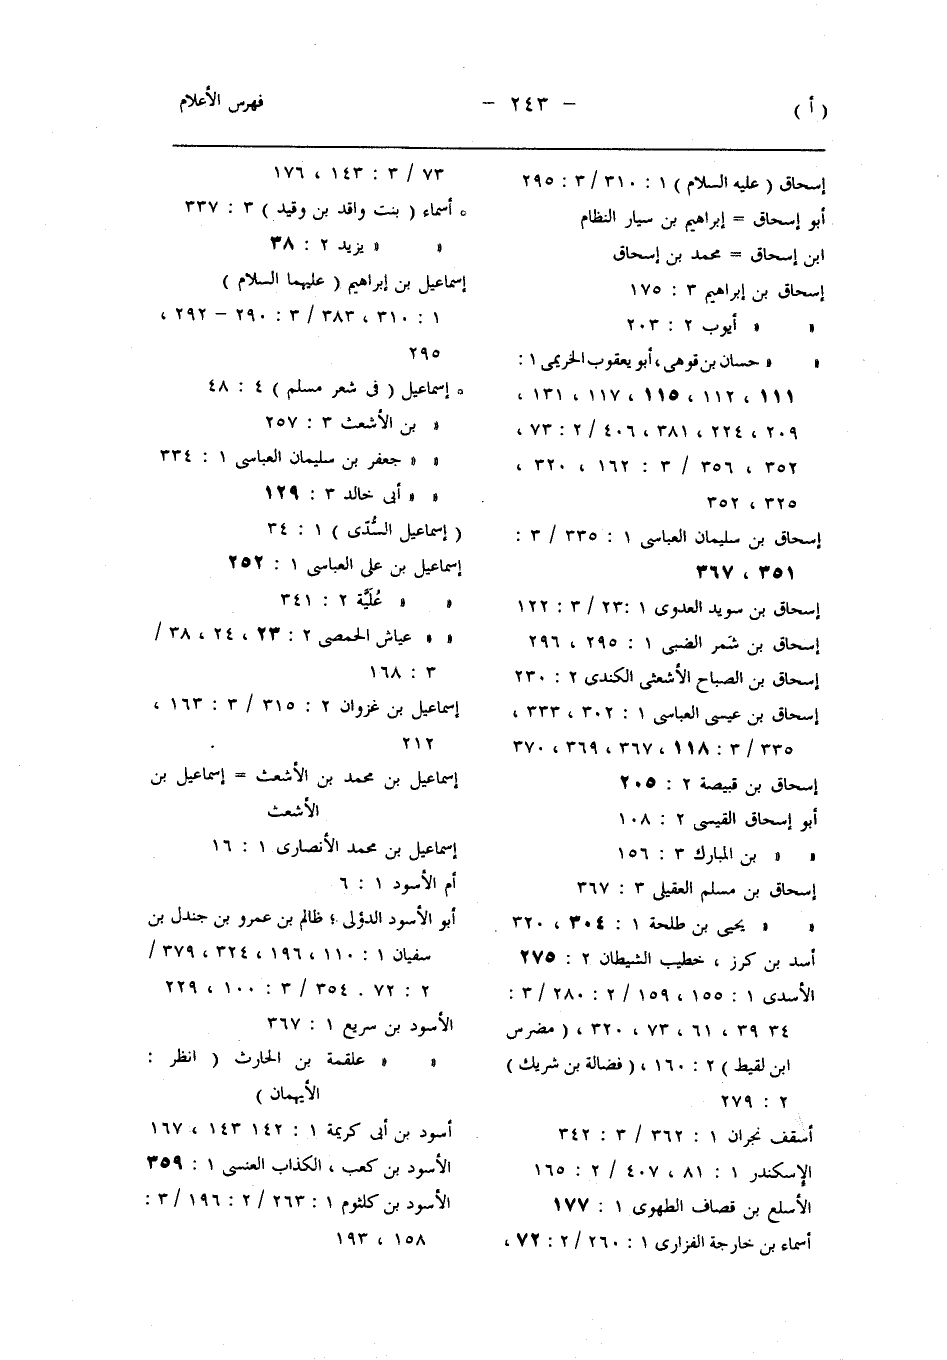 ( أ )
— ٢٤٣ —
فهرس الأعلام
إسحاق ( عليه السلام ) ١ : ٣١٠ / ٣ : ٢٩٥
أبو إسحاق = إبراهيم بن سيار النظام
ابن إسحاق = محمد بن إسحاق
إسحاق بن إبراهيم ٣ : ١٧٥
» » أيوب ٢ : ٢٠٣
» » حسان بن قوهى ، أبو يعقوب الخريمى ١ :
١١١ ، ١١٢ ، ١١٥ ، ١١٧ ، ١٣١ ،
٢٠٩ ، ٢٢٤ ، ٣٨١ ، ٤٠٦ / ٢ : ٧٣ ،
٣٥٢ ، ٣٥٦ / ٣ : ١٦٢ ، ٣٢٠ ،
٣٢٥ ، ٣٥٢
إسحاق بن سليمان العباسى ١ : ٣٣٥ / ٣ :
٣٥١ ، ٣٦٧
إسحاق بن سويد العدوى ١ : ٢٣ / ٣ : ١٢٢
إسحاق بن شمر الضبى ١ : ٢٩٥ ، ٢٩٦
إسحاق بن الصباح الأشعثى الكندى ٢ : ٢٣٠
إسحاق بن عيسى العباسى ١ : ٣٠٢ ، ٣٣٣ ،
٣٣٥ / ٣ : ١١٨ ، ٣٦٧ ، ٣٦٩ ، ٣٧٠
إسحاق بن قبيصة ٢ : ٢٠٥
أبو إسحاق القيسى ٢ : ١٠٨
» » بن المبارك ٣ : ١٥٦
إسحاق بن مسلم العقيلى ٣ : ٣٦٧
» » يحيى بن طلحة ١ : ٣٠٤ ، ٣٢٠
أسد بن كرز ، خطيب الشيطان ٢ : ٢٧٥
الأسدى ١ : ١٥٥ ، ١٥٩ / ٢ : ٢٨٠ / ٣ :
٣٤ ٣٩ ، ٦١ ، ٧٣ ، ٣٢٠ ، ( مضرس
ابن لقيط ) ٢ : ١٦٠ ، ( فضالة بن شريك )
٢ : ٢٧٩
أسقف نجران ١ : ٣٦٢ / ٣ : ٣٤٢
الإسكندر ١ : ٨١ ، ٤٠٧ / ٢ : ١٦٥
الأسلع بن قصاف الطهوى ١ : ١٧٧
أسماء بن خارجة الفزارى ١ : ٢٦٠ / ٢ : ٧٢ ،
٧٣ / ٣ : ١٤٣ ، ١٧٦
٥ أسماء ( بنت واقد بن وقيد ) ٣ : ٣٣٧
» » يزيد ٢ : ٣٨
إسماعيل بن إبراهيم ( عليهما السلام )
١ : ٣١٠ ، ٣٨٣ / ٣ : ٢٩٠ – ٢٩٢ ،
٢٩٥
٥ إسماعيل ( فى شعر مسلم ) ٤ : ٤٨
» بن الأشعث ٣ : ٢٥٧
» » جعفر بن سليمان العباسى ١ : ٣٣٤
» » أبى خالد ٣ : ١٢٩
( إسماعيل السُّدّى ) ١ : ٣٤
إسماعيل بن على العباسى ١ : ٢٥٢
» » عُلَيَّة ٢ : ٣٤١
» » عياش الحمصى ٢ : ٢٣ ، ٢٤ ، ٣٨ /
٣ : ١٦٨
إسماعيل بن غزوان ٢ : ٣١٥ / ٣ : ١٦٣ ،
٢١٢
إسماعيل بن محمد بن الأشعث = إسماعيل بن
الأشعث
إسماعيل بن محمد الأنصارى ١ : ١٦
أم الأسود ١ : ٦
أبو الأسود الدؤلى ؛ ظالم بن عمرو بن جندل بن
سفيان ١ : ١١٠ ، ١٩٦ ، ٣٢٤ ، ٣٧٩ /
٢ : ٧٢ . ٣٥٤ / ٣ : ١٠٠ ، ٢٢٩
الأسود بن سريع ١ : ٣٦٧
» » علقمة بن الحارث ( انظر :
الأيهمان )
أسود بن أبى كريمة ١ : ١٤٢ ١٤٣ ، ١٦٧
الأسود بن كعب ، الكذاب العنسى ١ : ٣٥٩
الأسود بن كلثوم ١ : ٢٦٣ / ٢ : ١٩٦ / ٣ :
١٥٨ ، ١٩٣